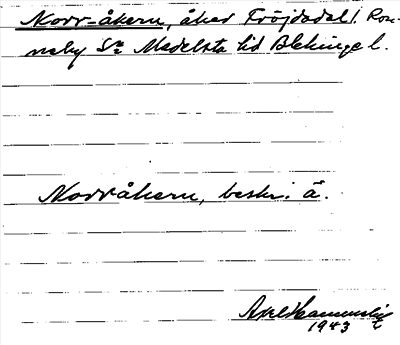 Norr-åkern, åker Fröjdadal i. Ron-
neby Sn Medelsta hd Blekinge l.
Norråkern, beskr. å.
Axel
1943